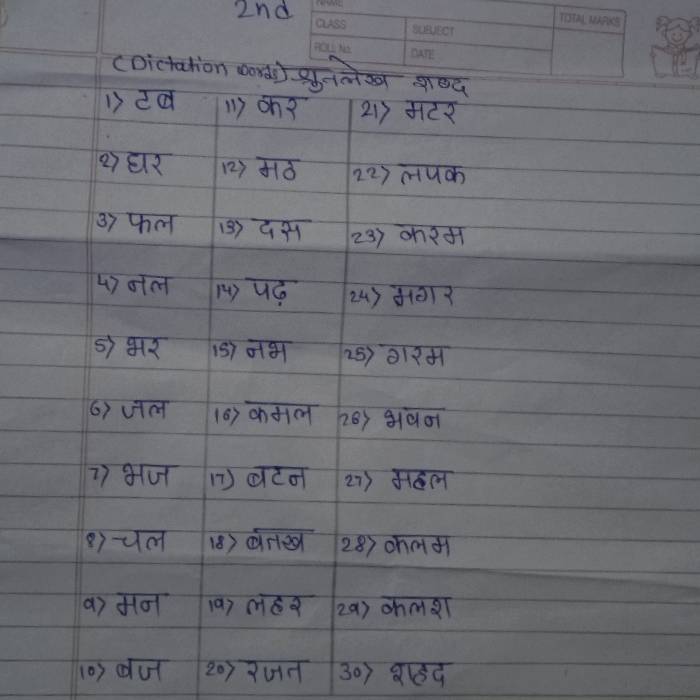 2nd
NAME
CLASS
SUBJECT
TOTAL MARKS
ROLL No.
DATE
(Dictation words) श्रुतलेख शब्द
1) टब 11) कर 21) मटर
2) घर 12) मठ 22) लपक
3) फल 13) दस 23) करम
4) नल 14) पढ़ 24) मगर
5) भर 15) नभ 25) गरम
6) जल 16) कमल 26) भवन
7) भज 17) बटन 27) महल
8) चल 18) बतख 28) कलम
9) मन 19) लहर 29) कलश
10) बज 20) रजत 30) शहद